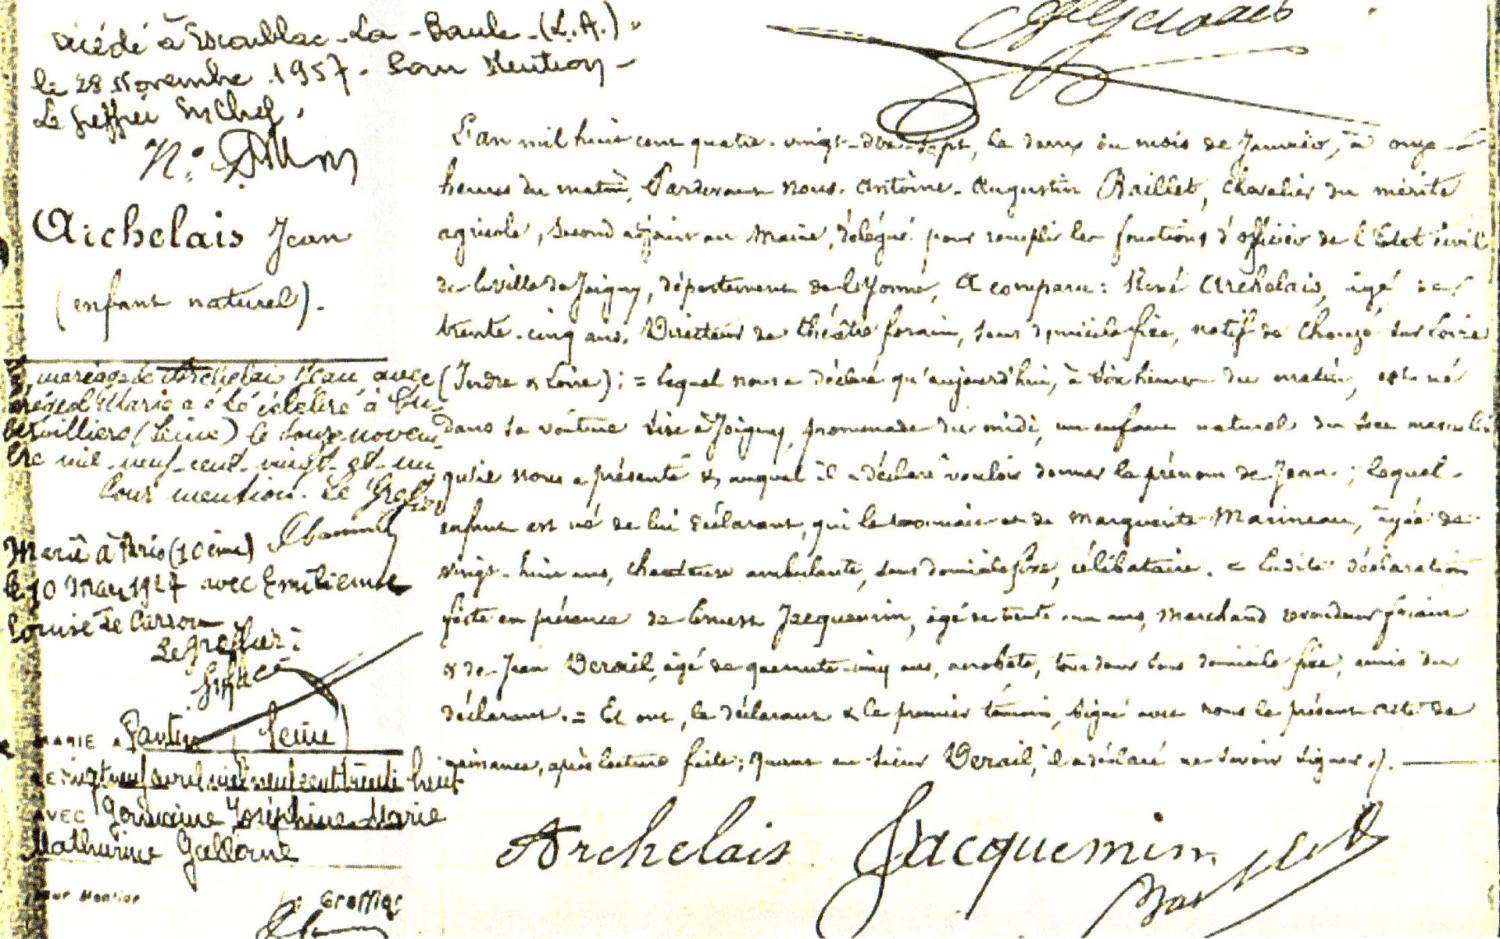 Décédé à Escoublac-La-Baule-(L.A.)
le 28 Novembre 1957. Pour Mention
Le Greffier en Chef.
Archelais Jean
(enfant naturel).
mariage de Archelais Jean avec
Marie a été célébré à
(Seine) le douze novem
bre mil neuf cent vingt et un
Pour mention. Le Greffier
Marié à Paris (10ème)
le 10 Mai 1927 avec Emilienne
Louise de
Le Greffier :
MARIE A Pantin (Seine)
LE vingt neuf avril mil neuf cent trente huit
AVEC Germaine Joséphine Marie
Mathurine
Pour Mention Le Greffier
L'an mil huit cent quatre-vingt-dix-sept, le deux du mois de Janvier, à onze
heures du matin, Pardevant nous, Antoine-Augustin Baillet, Chevalier du mérite
agricole, second adjoint au Maire, délégué pour remplir les fonctions d'officier de l'Etat civil
de la ville de Joigny, département de l'Yonne, A comparu : René Archelais, âgé de
trente-cinq ans, Directeur de théâtre forain, sans domicile fixe, natif de Chouzé sur Loire
(Indre & Loire) ; = lequel nous a déclaré qu'aujourd'hui, à dix heures du matin, est né
dans sa voiture sise à Joigny, promenade du midi, un enfant naturel du sexe masculin
qu'il nous a présenté & auquel il a déclaré vouloir donner le prénom de Jean ; lequel
enfant est né de lui déclarant, qui le reconnaît et de Marguerite Marineau, âgée de
vingt-huit ans, chanteuse ambulante, sans domicile fixe, célibataire. = Ladite déclaration
faite en présence de Ernest Jacquemin, âgé de trente un ans, Marchand vendeur forain
& de Jean Verail, âgé de quarante-cinq ans, acrobate, tous deux sans domicile fixe, amis du
déclarant. = Et ont, le déclarant & le premier témoin, signé avec nous le présent acte de
naissance, après lecture faite ; quant au sieur Verail, il a déclaré ne savoir signer.
Archelais Jacquemin